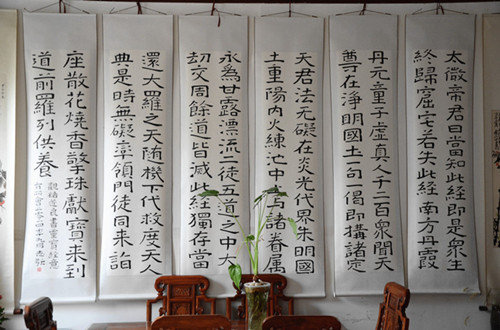 太微帝君曰當知此經即是衆生
終歸窟宅若失此經南方丹霞
丹元童子虛真人千二百衆聞天
尊在淨明國土句一偈即搆諸定
天君法无礙在炎光代界朱明國
土重陽内火練池中与諸眷屬
永為甘露漂流二徒五道之中大
劫交周餘道皆滅此經獨存當
還大羅之天随機下代救度天人
典是時無礙率領門徒同来詣
座散花燒香擎珠獻寶来到
道前羅列供養